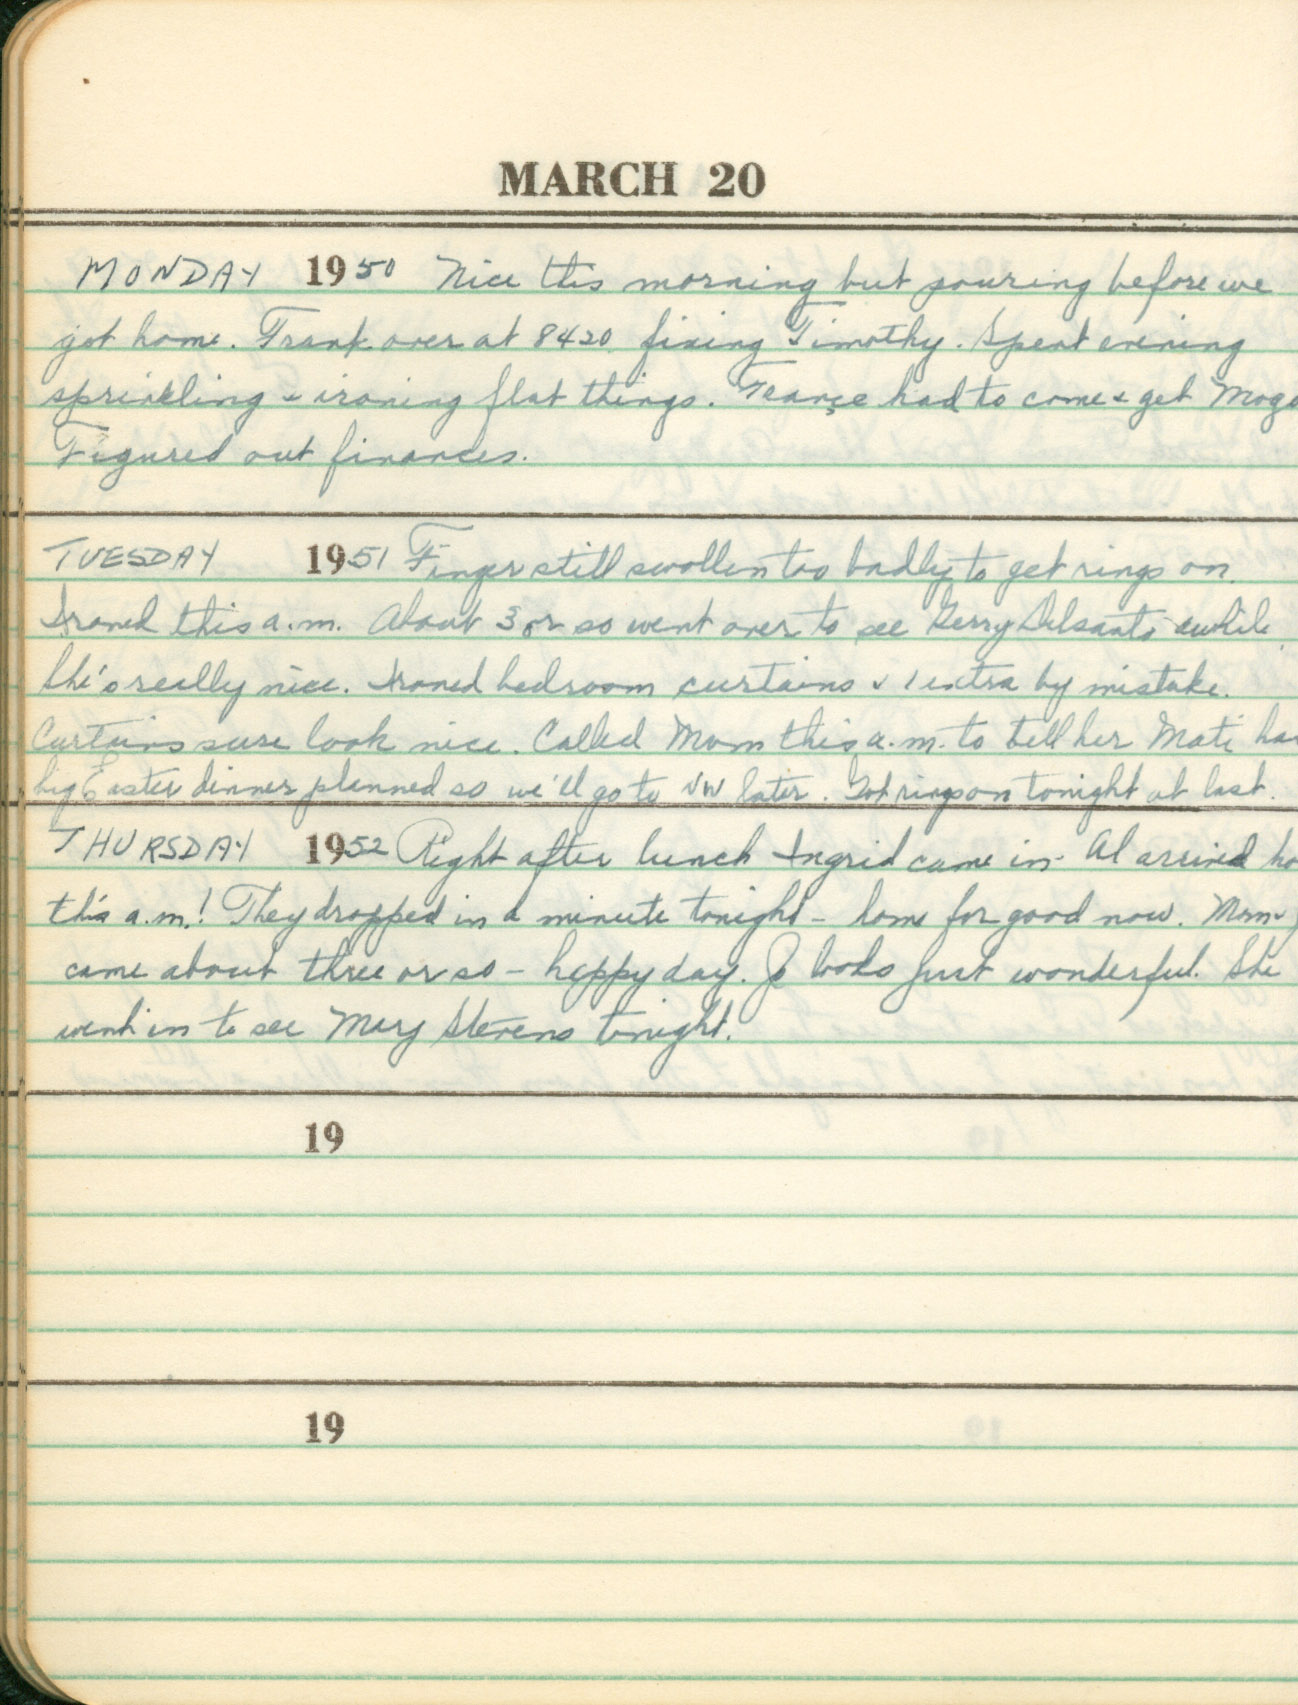 MARCH 20
MONDAY 1950 Nice this morning but pouring before we
got home. Frank over at 8420 fixing Timothy. Spent evening
sprinkling & ironing flat things. France had to come & get Mogo
Figured out finances.
TUESDAY 1951 Finger still swollen too badly to get rings on.
Ironed this a.m. About 3 or so went over to see Gerry awhile
She's really nice. Ironed bedroom curtains & 1 extra by mistake.
Curtains sure look nice. Called Mom this a.m. to tell her Mati has
big Easter dinner planned so we'll go to VW later. Got rings on tonight at last.
THURSDAY 1952 Right after lunch Ingrid came in - Al arrived ho
this a.m.! They dropped in a minute tonight - home for good now. Mom & J
came about three or so - happy day. Jo looks just wonderful. She
went in to see Mary Stevens tonight.
19
19